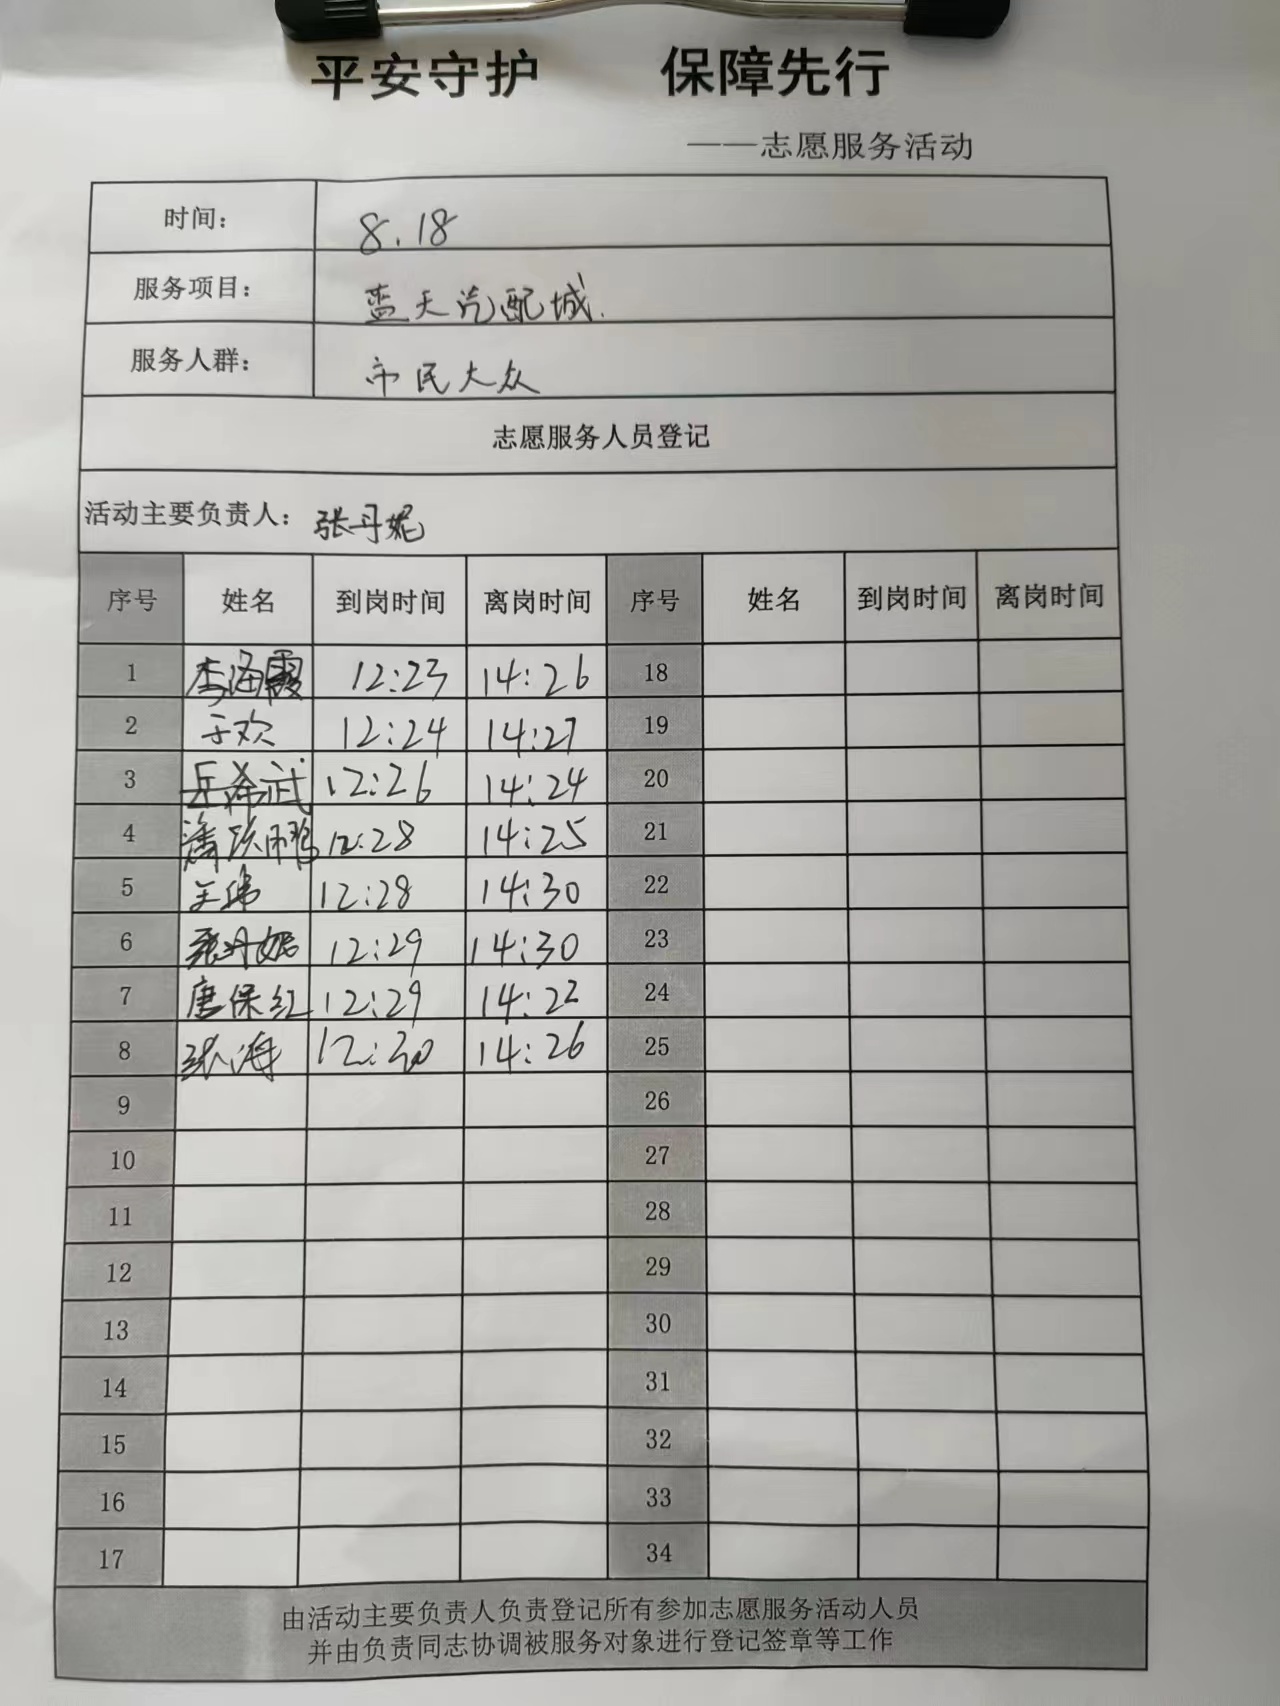 平安守护 保障先行
——志愿服务活动
时间： 8.18
服务项目： 蓝天汽配城.
服务人群： 市民大众
志愿服务人员登记
活动主要负责人： 张丹妮
序号 姓名 到岗时间 离岗时间 序号 姓名 到岗时间 离岗时间
1 李海霞 12:23 14:26 18
2 于欢 12:24 14:27 19
3 岳希武 12:26 14:24 20
4 潘跃鹏 12:28 14:25 21
5 王伟 12:28 14:30 22
6 张丹妮 12:29 14:30 23
7 唐保红 12:29 14:22 24
8 张海 12:30 14:26 25
9 26
10 27
11 28
12 29
13 30
14 31
15 32
16 33
17 34
由活动主要负责人负责登记所有参加志愿服务活动人员
并由负责同志协调被服务对象进行登记签章等工作